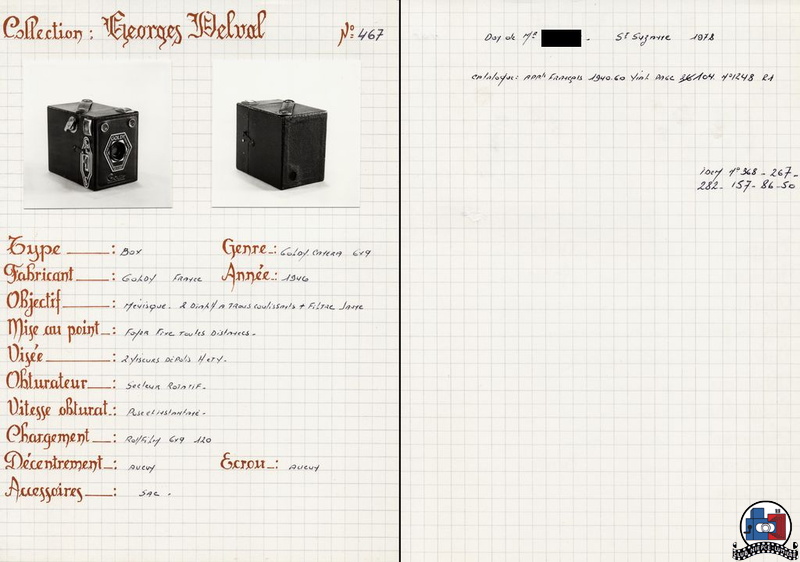 Collection : Georges Delval N° 467
GOLDY
Type : Box Genre : GOLDY CAMERA 6x9
Fabricant : GOLDY FRANCE Année : 1946
Objectif : Ménisque. 2 Diaph à Trous coulissants + Filtre Jaune
Mise au point : Foyer Fixe toutes Distances.
Visée : 2 Viseurs Dépolis
Obturateur : Secteur Rotatif.
Vitesse obturat : Pose et instantané.
Chargement : Rollfilm 6x9 120
Décentrement : AUCUN Ecrou : AUCUN
Accessoires : SAC .
Don de Mr . Ste Suzanne 1978
catalogue: APPn Français 1940.60 Vial PAGE 104. N°1248 R1
Idem N° 368 - 267 -
282 - 157 - 86 - 50